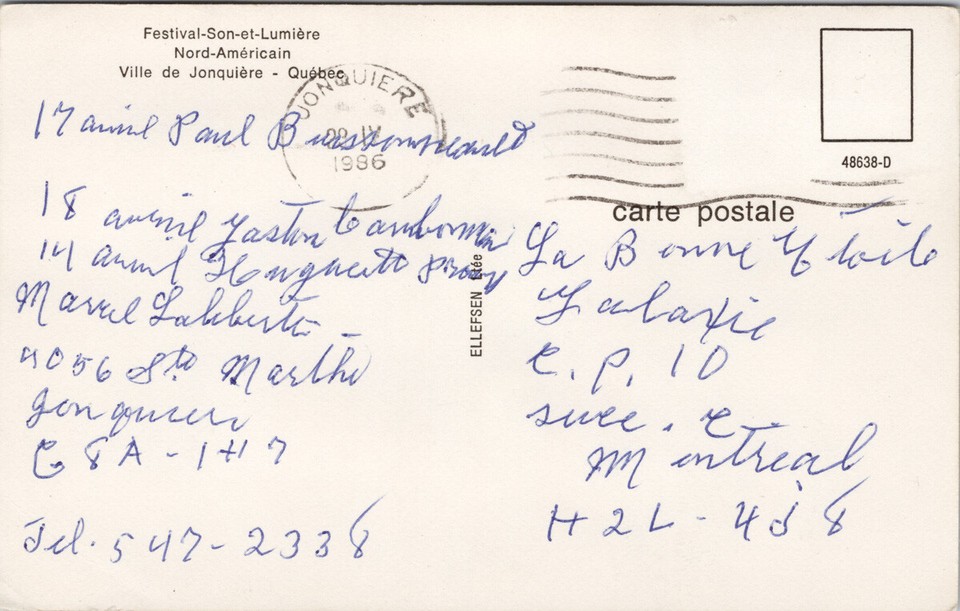 Festival-Son-et-Lumière
Nord-Américain
Ville de Jonquière - Québec
JONQUIERE
IV
1986
48638-D
carte postale
17 avril Paul Buissonneault
18 avril Gaston
14 avril Huguette Proulx
Marcel Laliberté
4056 Ste Marthe
Jonquiere
G8A-1H7
Tel. 547-2338
ELLEFSEN
La Bonne Etoile
Galaxie
C.P. 10
succ. C.
Montreal
H2L-4J8